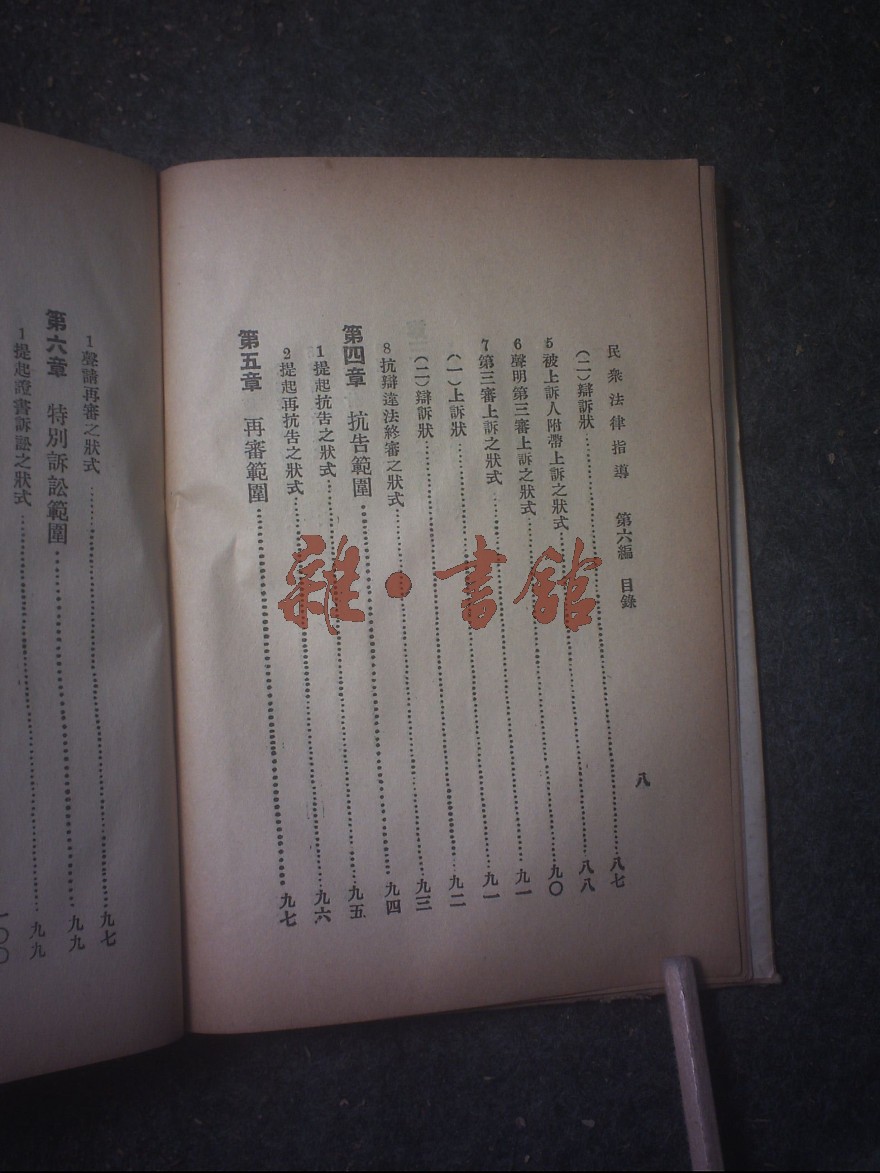 民衆法律指導　第六編　目錄　八
(二)辯訴狀……八七
5 被上訴人附帶上訴之狀式……八八
6 聲明第三審上訴之狀式……九〇
7 第三審上訴之狀式……九一
(一)上訴狀……九一
(二)辯訴狀……九二
8 抗辯違法終審之狀式……九三
第四章　抗告範圍……九四
1 提起抗告之狀式……九五
2 提起再抗告之狀式……九六
第五章　再審範圍……九七
1 聲請再審之狀式……九七
第六章　特別訴訟範圍……九九
1 提起證書訴訟之狀式……九九
一〇〇
雜·書館